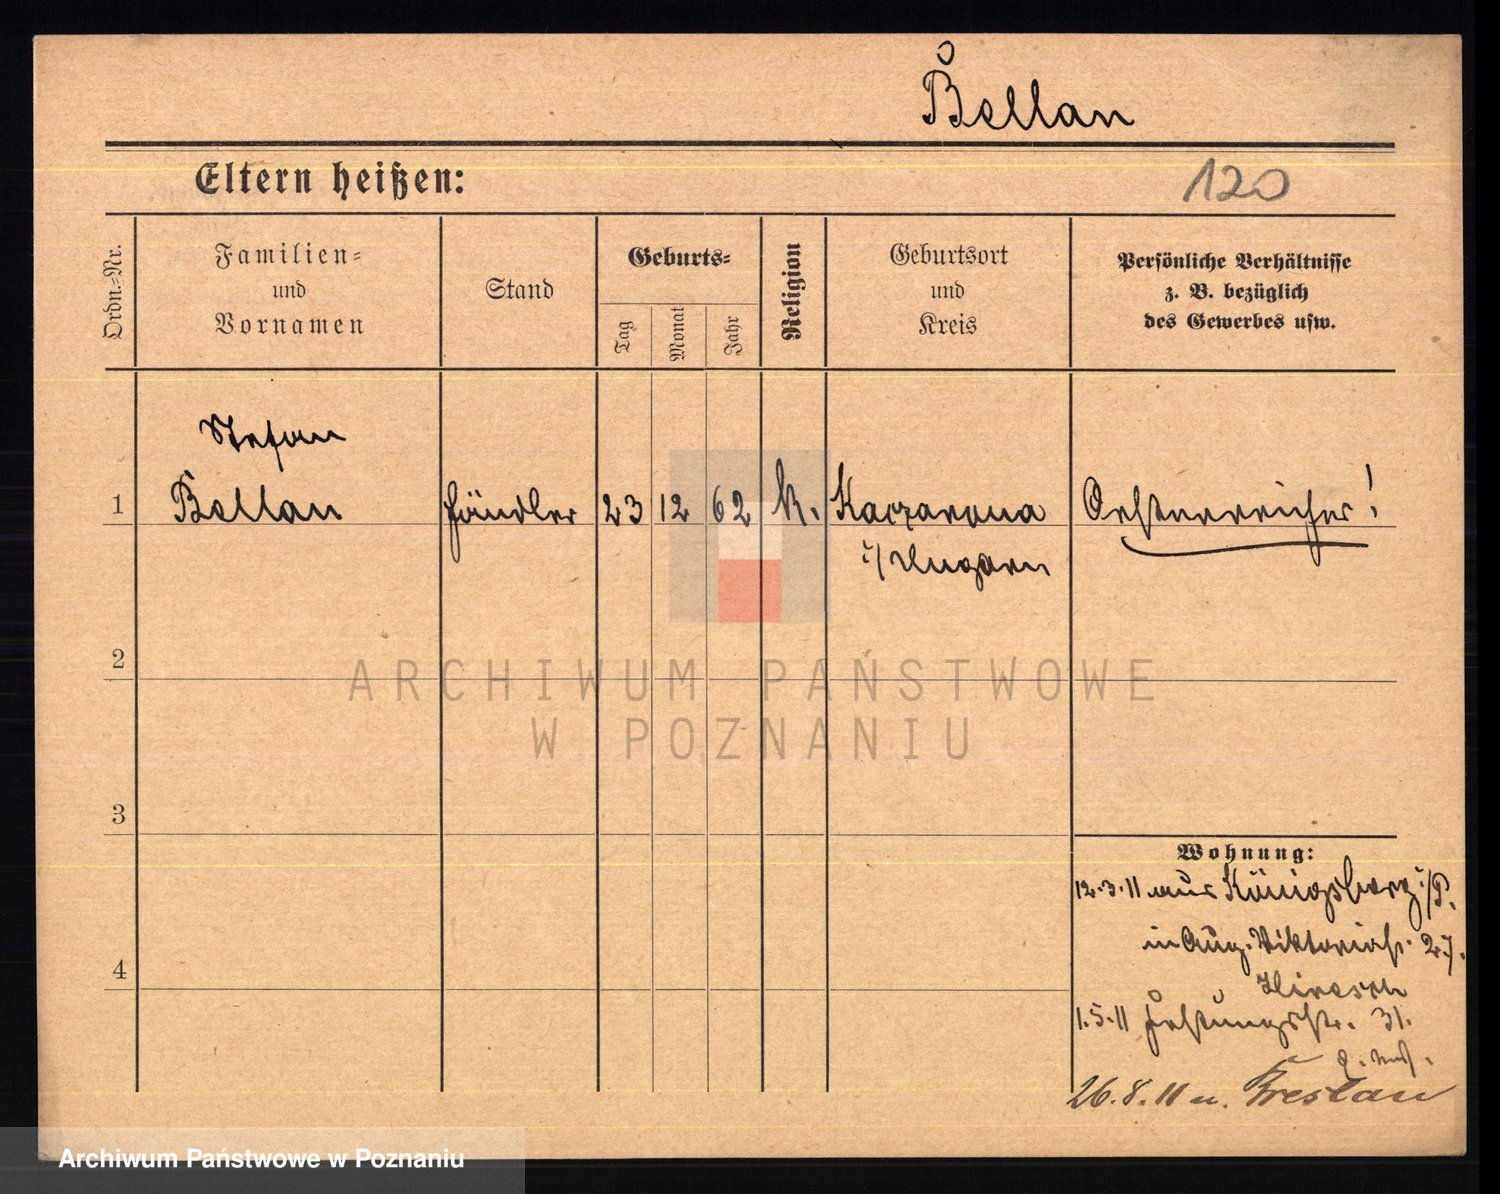 Bellan
Eltern heißen:
120
Ordn.-Nr.
Familien-
und
Vornamen
Stand
Geburts-
Tag
Monat
Jahr
Religion
Geburtsort
und
Kreis
Persönliche Verhältnisse
z. B. bezüglich
des Gewerbes usw.
Stefan
1 Bellan Händler 23 12 62 K. Kaczarowa Oesterreicher!
i/Ungarn
2
3
4
Wohnung:
12.3.11 aus Königsberg i/P.
in Aug. Viktoriast. 27.
1.5.11 Festungsstr. 31.
26.8.11 n. Breslau
ARCHIWUM PAŃSTWOWE
W POZNANIU
Archiwum Państwowe w Poznaniu